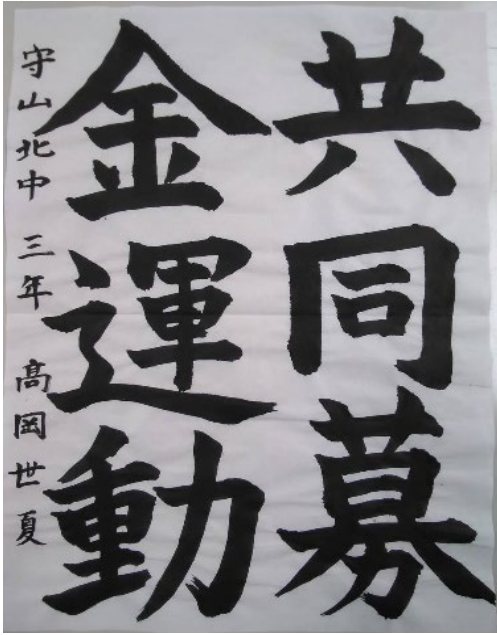 共同募
金運動
守山北中 三年 髙岡世夏